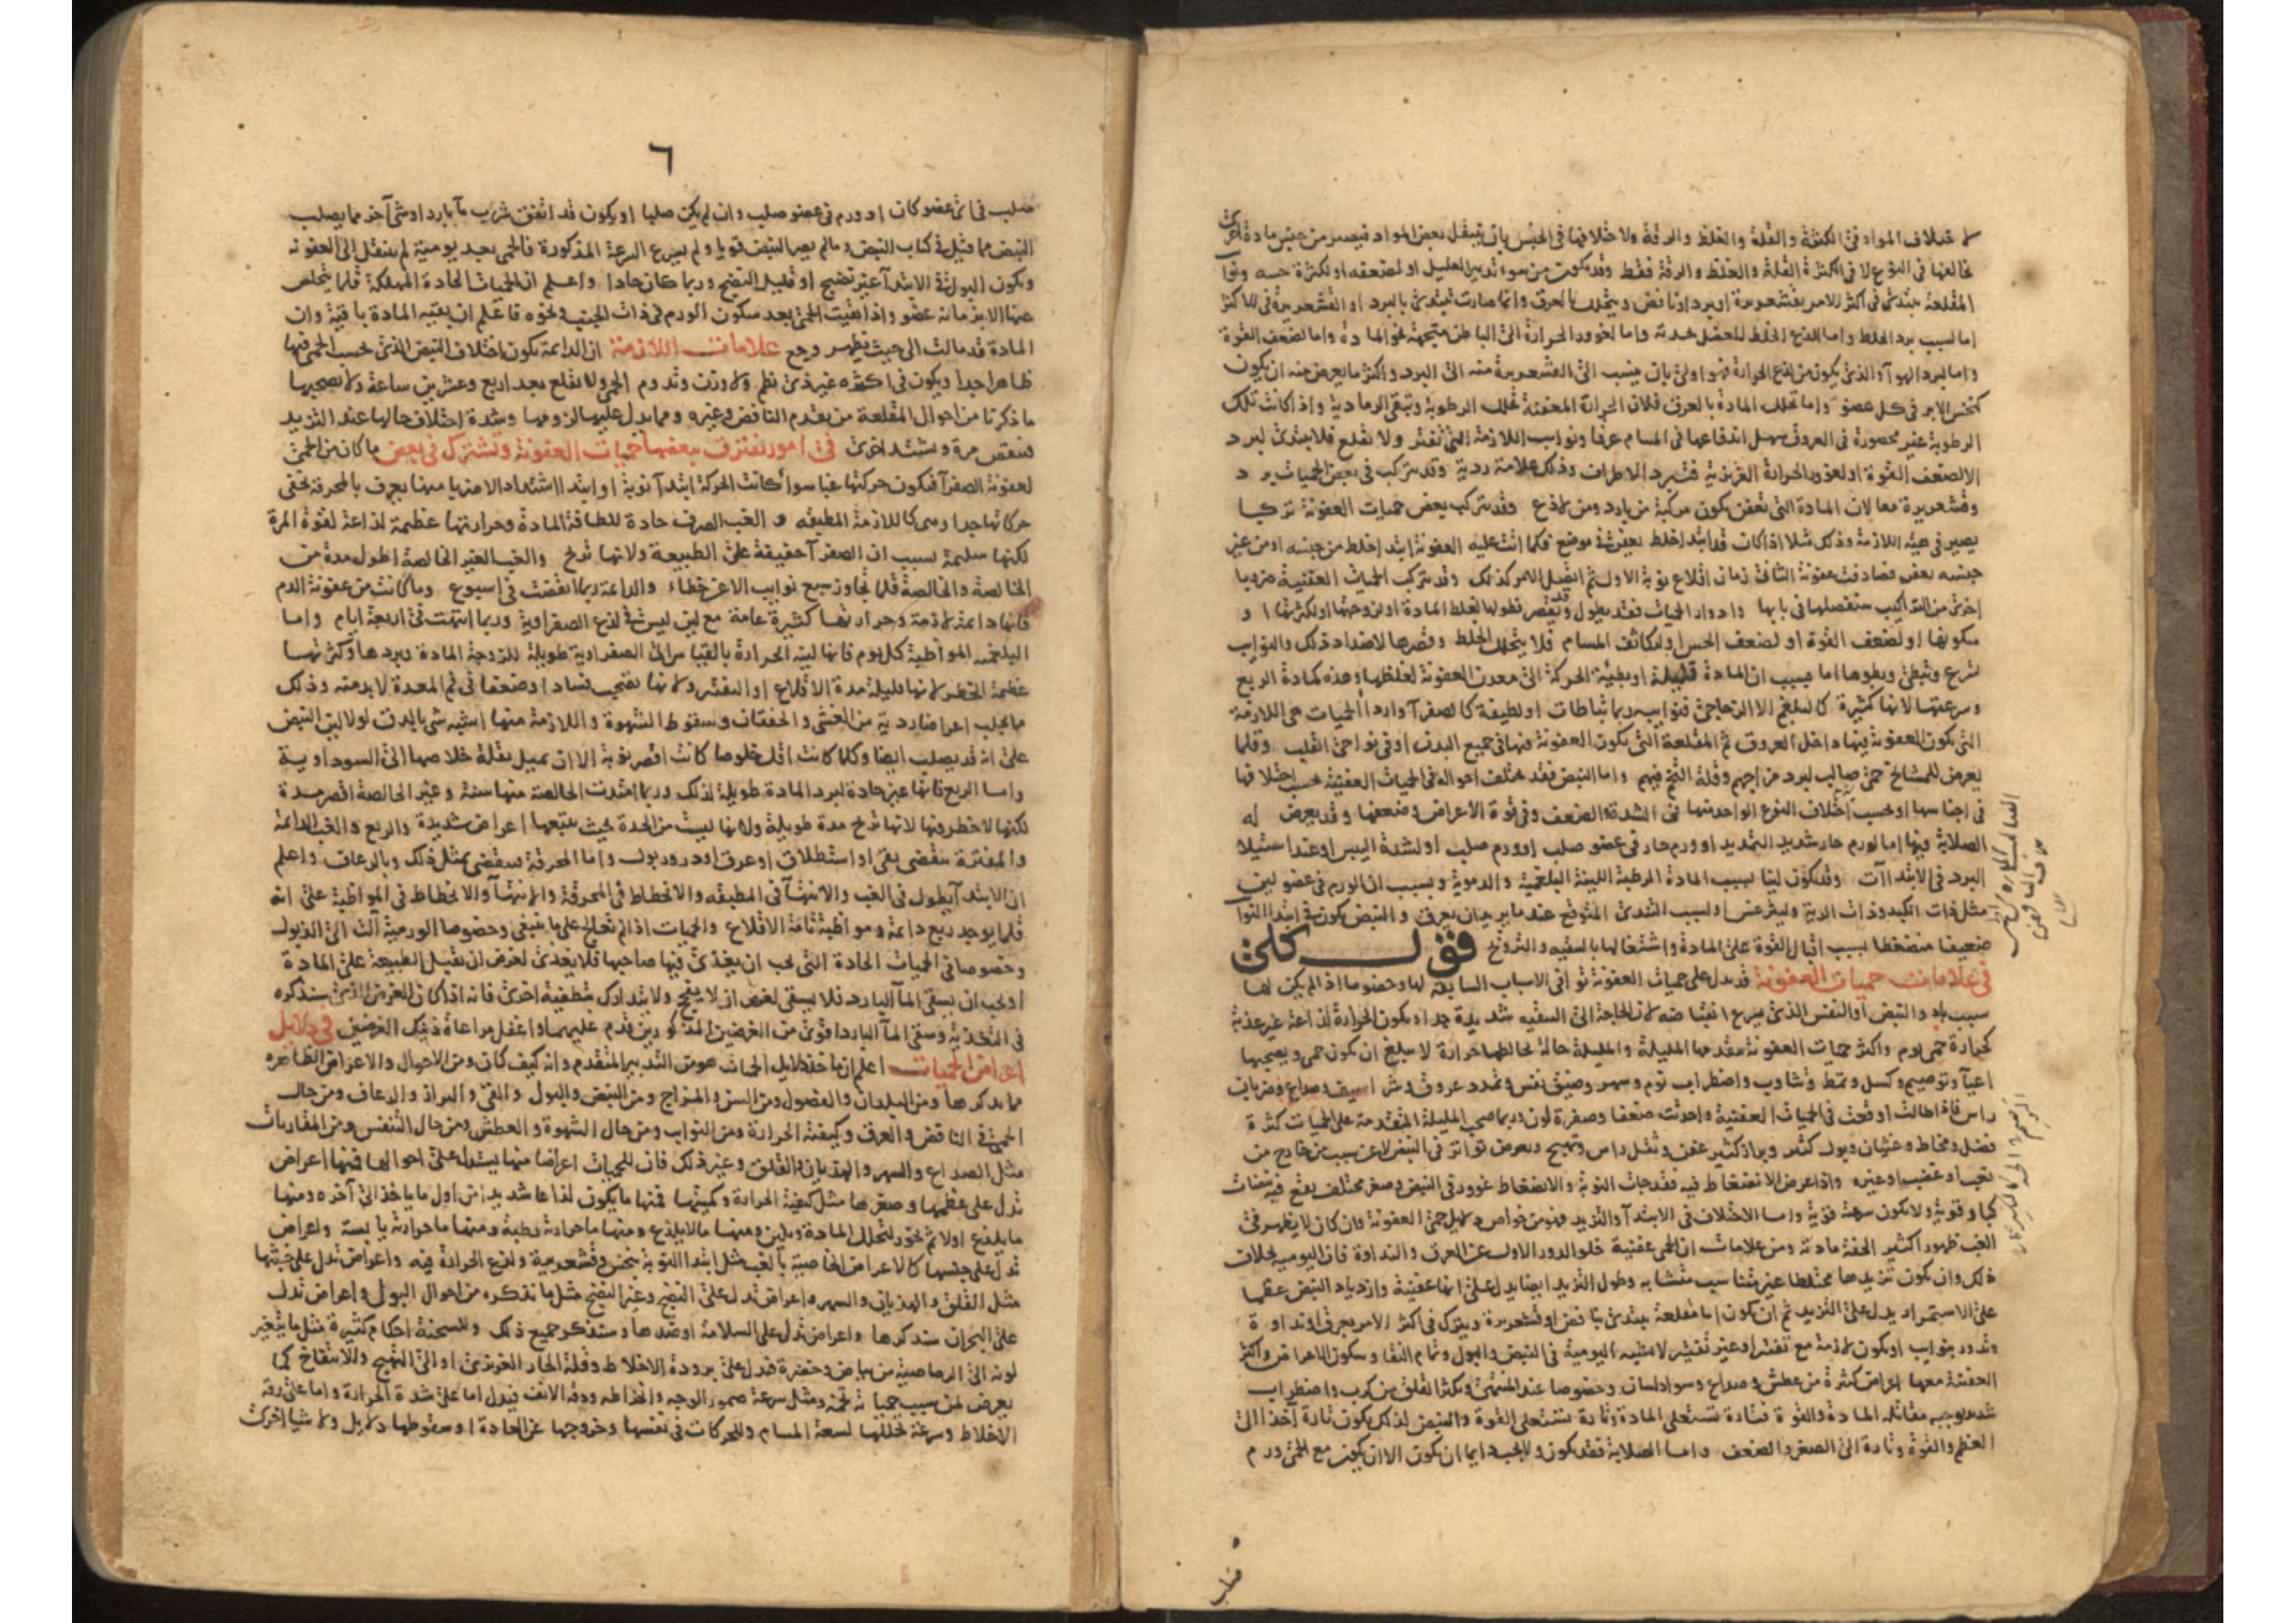 لاختلاف المواد في الكثرة والقلة والغلظ والرقة ولاختلافها في الجنس بان ينتقل بعض المواد فيصير من جنس مادة اخرى
تخالفها في النوع لا في الكثرة والقلة والغلظ والرقة فقط وقد يكون من سوء تدبير العليل او لضعفه او لكثرة حسه
المقلعة يبتدئ في اكثر الامر بقشعريرة او برد او نافض ويتحلل بالعرق وانما صارت تبتدئ بالبرد او القشعريرة في الاكثر
اما لسبب برد الخلط واما للذع الخلط للعضل بحدته واما لغوور الحرارة الى الباطن متجهة نحو المادة واما لضعف القوة
واما لبرد الهوآ والذي يكون من لذع الحرارة فهو اولى بان ينسب الى القشعريرة منه الى البرد واكثر ما يعرض منه ان يكون
كنخس الابر في كل عضو واما تحلل المادة بالعرق فلان الحرارة المعفنة تحلل الرطوبة وتبقي الرمادية واذا كانت تلك
الرطوبة غير محصورة في العروق سهل اندفاعها في المسام عرقا ونوايب اللازمة التي تفتر ولا تقلع فلا يبتدئ لبرد
الا لضعف القوة او لغوور الحرارة الغريزية فتبرد الاطراف وذلك علامة ردية وقد يتركب في بعض الحميات برد
وقشعريرة معا لان المادة التي تعفن يكون مركبة من بارد ومن لاذع وقد يتركب بعض حميات العفونة تركيبا
يصير في هيئة اللازمة وذلك مثلا اذا كانت قد ابتدا خلط يعفن في موضع فكما اتت عليه العفونة ابتدا خلط من جنسه او من غير
جنسه يعفن فصادفت عفونة الثاني زمان اقلاع نوبة الاول ثم اتصل الامر كذلك وقد يتركب الحميات العفنية ضروبا
اخرى من التراكيب ستفصلها في بابها وادوار الحميات فقد يطول وقد يقصر فطولها لغلظ المادة او لزوجتها او لكثرتها او
سكونها او لضعف القوة او لضعف الحس او لتكاثف المسام فلا يتحلل الخلط وقصرها لاضداد ذلك والنوايب
تسرع وتبطئ وبطوها اما بسبب ان المادة قليلة او بطيئة الحركة الى معدن العفونة لغلظها وهذه كمادة الربع
وسرعتها لانها كثيرة كالبلغم الا الزجاجي فنوايبه ربما تباطات او لطيفة كالصفرآ واردا الحميات هي اللازمة
التي يكون العفونة فيها داخل العروق ثم المقلعة التي يكون العفونة فيها في جميع البدن او في نواحي القلب وقلما
يعرض للمشايخ حمى صالب لبرد مزاجهم وقلة التخم فيهم واما النبض فقد يختلف احواله في الحميات العفنية بحسب اختلافها
في اجناسها او بحسب اختلاف النوع الواحد منها في الشدة والضعف وفي قوة الاعراض وضعفها وقد يعرض له
الصلابة فيها اما لورم حار شديد التمديد او ورم حار في عضو صلب او ورم صلب او لشدة اليبس او عند استيلا
البرد في الابتدآات وقد يكون لينا لسبب المادة الرطبة اللينة البلغمية والدموية وبسبب ان الورم في عضو لين
مثل ذات الكبد وذات الرية وليثرغس او لسبب التندي المتوقع عندما يريد ان يعرق والنبض يكون في ابتدا النوايب
ضعيفا منضغطا بسبب اقبال القوة على المادة واشتغالها بالتنقية والترويح قول كلي
في علامات حميات العفونة قد يدل على حميات العفونة توافي الاسباب السابقة لها وخصوصا اذا لم يكن لها
سبب باد والنبض او النفس الذي يسرع انقباضه لان الحاجة الى التنقية شديدة جدا ويكون الحرارة لذاعة غير عذبة
كحرارة حمى يوم واكثر حميات العفونة يتقدمها المليلة والمليلة حالة يخالطها حرارة لا يبلغ ان يكون حمى ويصحبها
اعيآ وتوصيم وكسل وتمط وتثاوب واضطراب نوم وسهر وضيق نفس وتمدد عروق وشراسيف وصداع وضربان
راس فاذا طالت اوقعت في الحميات العفنية واحدثت ضعفا وصفرة لون وربما صحب المليلة المتقدمة على الحميات كثرة
فضل ومخاط وغثيان وبول كثير وبراز كثير عفن وثقل راس وتهيج ويعرض تواتر في النبض لا عن سبب من خارج من
تعب او غضب او غيره واذا عرض الانضغاط فيه فقد جات النوبة والانضغاط غوور في النبض وصغر مختلف يقع فيه نبضات
كبار وقوية ولا يكون سرعته قوية واما الاختلاف في الابتدآ والتزيد فهو من خواص دلايل حمى العفونة وان كان لا يظهر في
الغب ظهورا كثير الخفة مادته ومن علامات ان الحمى عفنية خلو الدور الاول عن العرق والنداوة فان اليومية بخلاف
ذلك وان يكون تزيدها مختلطا غير متناسب متشابه وطول التزيد ايضا يدل على انها عفنية وازدياد النبض عظما
على الاستمرار يدل على التزيد ثم ان يكون اما مقلعة يبتدئ بنافض او قشعريرة ويترك في اكثر الامر بعرق او نداوة
وتدور بنوايب او يكون لازمة مع تفتير او غير تفتير لا يشبه اليومية في النبض والبول وتمام النقا وسكون الاعراض واكثر
العفنية معها اعراض كثيرة من عطش وصداع وسواد لسان وخصوصا عند المنتهى ويكثر القلق من كرب واضطراب
شديد يوجبه مقاتلة المادة والقوة فتارة تستعلي المادة وتارة تستعلي القوة والنبض لذلك يكون تارة آخذا الى
العظم والقوة وتارة الى الصغر والضعف واما الصلابة فقد يكون ولا يجب دايما ان يكون الا ان يكون مع الحمى ورم
٦
صلب في اي عضو كان او ورم في عضو صلب وان لم يكن صلبا او يكون قد اتفق شرب مآ بارد او شئ آخر مما يصلب
النبض مما قيل في كتاب النبض وما لم يصر النبض قويا ولم يسرع السرعة المذكورة فالحمى بعد يومية لم ينتقل الى العفونة
ويكون البول في الابتدآ غير نضيج او قليل النضج وربما كان حادا واعلم ان الحميات الحادة المهلكة قلما يتخلص
عنها الا بزمانة عضو واذا بقيت الحمى بعد سكون الورم في ذات الجنب ونحوه فاعلم ان بقية المادة باقية وان
المادة قد مالت الى حيث يظهر وجع علامات اللازمة ان الدايمة يكون اختلاف النبض الذي بحسب الحمى فيها
ظاهرا جدا ويكون في اكثره غير ذي نظم ولا وزن وتدوم الحمى ولا يقلع بعد اربع وعشرين ساعة ولا يصحبها
ما ذكرنا من احوال المقلعة من تقدم النافض وغيره ومما يدل عليها لزومها وشدة اختلاف حالها عند التزيد
فينقص مرة ويشتد اخرى في امور تفترق ببعضها حميات العفونة وتشترك في بعض ما كان من الحمى
لعفونة الصفرآ فيكون حركتها غبا سوآ كانت الحركة ابتدآ نوبة او ابتدا اشتداد الا ضربا منها يعرف بالمحرقة يخفى
حركاتها جدا ويرى كاللازمة المطبقة والغب الصرف حادة للطافة المادة وحرارتها عظيمة لذاعة لقوة المرة
لكنها سليمة بسبب ان الصفرآ خفيفة على الطبيعة ولانها تريح والغب الغير الخالصة اطول مدة من
الخالصة والخالصة قلما تجاوز سبع نوايب الا عن خطاء والدايمة ربما انقضت في اسبوع وما كانت من عفونة الدم
فانها دايمة لازمة وحرارتها كثيرة عامة مع لين ليس في لذع الصفراوية وربما انتهت في اربعة ايام واما
البلغمية المواظبة كل يوم فانها لينة الحرارة بالقياس الى الصفراوية طويلة للزوجة المادة وبردها وكثرتها
عظيمة الخطر لانها قليلة مدة الاقلاع او التفتر ولانها يصحب فسادا وضعفا في فم المعدة لا بد منه وذلك
مما يجلب اعراضا ردية من الغشي والخفقان وسقوط الشهوة واللازمة منها اشبه شئ بالدق لولا لين النبض
على انه قد يصلب ايضا وكلما كانت اقل خلوصا كانت اقصر نوبة الا ان تميل بقلة خلاصها الى السوداوية
واما الربع فانها غير حادة لبرد المادة طويلة لذلك وربما امتدت الخالصة منها سنة وغير الخالصة اقصر مدة
لكنها لا خطر فيها لانها تريح مدة طويلة ولانها ليست من الحدة بحيث يتبعها اعراض شديدة والربع والغب الدايمة
والمفترة تنقضي بقئ او استطلاق او عرق او درور بول واما المحرقة فينقضي بمثل ذلك وبالرعاف واعلم
ان الابتدآ يطول في الغب والانتهآ في المطبقة والانحطاط في المحرقة والانتهآ والانحطاط في المواظبة على انه
قلما يوجد ربع دايمة ومواظبة تامة الاقلاع والحميات اذا لم تعالج على ما ينبغي وخصوصا الورمية آلت الى الذبول
وخصوصا في الحميات الحادة التي يجب ان يغذى فيها صاحبها فلا يغذى لغرض ان يقبل الطبيعة على المادة
او يجب ان يسقى المآ البارد فلا يسقى لغرض ان لا يفج ولا يتدارك بتطفية اخرى فانه اذا كان الغرض الذي سنذكره
في التغذية وسقي المآ البارد اقوى من الغرضين المذكورين قدم عليهما واغفل مراعاة ذينك الغرضين في دلايل
اعراض الحميات اعلم ان ماخذ دلايل الحميات هو من التدبير المتقدم وانه كيف كان ومن الاحوال والاعراض الظاهرة
مما يذكرها ومن البلدان والفصول ومن السن والمزاج ومن النبض والبول والقئ والبراز والرعاف ومن حال
الحمى في النافض والعرق وكيفية الحرارة ومن النوايب ومن حال الشهوة والعطش ومن حال التنفس ومن المقارنات
مثل الصداع والسهر والهذيان والقلق وغير ذلك فان للحميات اعراضا منها يستدل على احوالها فمنها اعراض
تدل على عظمها وصغرها مثل كيفية الحرارة وكميتها فمنها ما يكون لذاعا شديدا من اول ما ياخذ الى آخره ومنها
ما يلذع اولا ثم يخور لتحلل المادة ويلين ومنها ما لا يلذع ومنها ما حرارته رطبة ومنها ما حرارته يابسة واعراض
تدل على جنسها كالاعراض الخاصية بالغب مثل ابتدا النوبة بنخس وقشعريرة ولذع الحرارة فيه واعراض تدل على خبثها
مثل القلق والهذيان والسهر واعراض تدل على النضج وغير النضج مثل ما نذكره من احوال البول واعراض تدل
على البحران سنذكرها واعراض تدل على السلامة او ضدها وسنذكر جميع ذلك وللسحنة احكام كثيرة مثل ما يتغير
لونه الى الرصاصية من بياض وخضرة فيدل على برودة الاخلاط وقلة الحار الغريزي او الى التهيج والانتفاخ كما
يعرض لمن سبب حمياته تخمة ومثل سرعة ضمور الوجه وانخراطه ودقة الانف فيدل اما على شدة الحرارة واما على رقة
الاخلاط وسرعة تحللها لسعة المسام وللحركات في نفسها وخروجها عن العادة او سقوطها دلايل ولاشيا اخرى